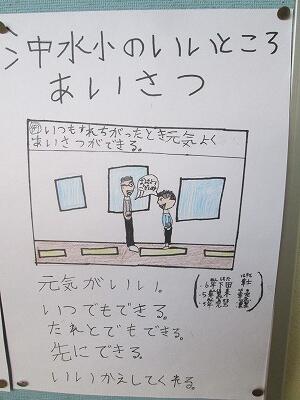 中水小のいいところ
あいさつ
例 いつもすれちがったとき元気よく
あいさつができる。
元気がいい。
いつでもできる。
だれとでもできる。
先にできる。
いいかえしてくれる。